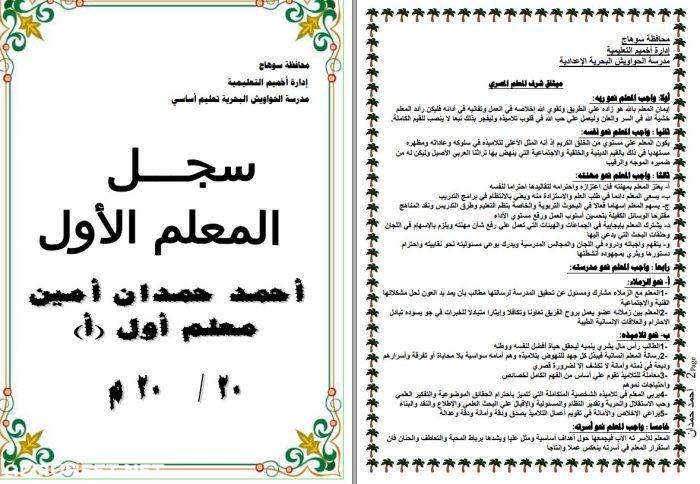 محافظة سوهاج
إدارة أخميم التعليمية
مدرسة الحواويش البحرية تعليم أساسي
سجـــل
المعلم الأول
أحمد حمدان أمين
معلم أول (أ)
٢٠ / ٢٠ م
محافظة سوهاج
إدارة أخميم التعليمية
مدرسة الحواويش البحرية الإعدادية
ميثاق شرف المعلم المصري
أولا: واجب المعلم نحو ربه:
إيمان المعلم بالله هو زاده علي الطريق وتقوي الله إخلاصه في العمل وتفانيه في أدائه فليكن رائد المعلم
خشية الله في السر والعلن وليعمل علي حب الله في قلوب تلاميذه وليفجر بذلك نبعا لا ينصب للقيم الكاملة.
ثانيا : واجب المعلم نحو نفسه:
يكون المعلم علي مستوي من الخلق الكريم إذ أنه المثل الأعلي لتلاميذه في سلوكه وعاداته ومظهره
مستهديا في ذلك بالقيم الدينية والخلقية والاجتماعية التي ينهض بها تراثنا العربي الأصيل وليكن له من
ضميره الموجه والرقيب
ثالثا : واجب المعلم نحو مهنته:
أ- يعتز المعلم بمهنته فان اعتزازه واحترامه لتقاليدها احتراما لنفسه
ب- يسعي المعلم دائما في طلب العلم والاستزادة منه ويعني بالانتظام في برامج التدريب
ج- يسهم المعلم إسهاما فعالا في البحوث التربوية والخاصة بنظم التعليم وطرق التدريس ونقد المناهج
مقترحا الوسائل الكفيلة بتحسين أسلوب العمل ورفع مستوي الأداء
د- يشترك المعلم بإيجابية في الجماعات والهيئات التي تعمل علي رفع شأن مهنته ويلتزم بالإسهام في اللجان
وحلقات البحث التي يدعي إليها
و- يتفهم واجباته ودروه في اللجان والمجالس المدرسية ويدرك بوعي مسئوليته نحو نقابيته واحترام
دستورها ويثري بمجهوده أنشطتها
رابعا : واجب المعلم نحو مدرسته:
أ- نحو الزملاء:
1-المعلم مع الزملاء مشارك ومسئول عن تحقيق المدرسة لرسالتها مطالب بأن يمد يد العون لحل مشكلاتها
الفنية والاجتماعية
2-المعلم بين زملائه عضو يعمل بروح الفريق تعاونا وتكافلا وإيثارا متبادلا للخبرات في جو يسوده تبادل
الاحترام والعلاقات الإنسانية الطيبة
ب- نحو تلاميذه:
1-الطالب رأس مال بشري ينميه ليحقق حياة أفضل لنفسه ووطنه
2-رسالة المعلم إنسانية فيبذل كل جهد للنهوض بتلاميذه وهم أمامه سواسية بلا محاباة أو تفرقة وأسرارهم
وديعة في ذمته وأمانة لا تكشف إلا لضرورة قصري
3-معاملة للتلاميذ تقوم علي أساس من الفهم الكامل لخصائص
واحتياجات نموهم
4-ليربي المعلم في تلاميذه الشخصية المتكاملة التي تتميز باحترام الحقائق الموضوعية والتفكير العلمي
وحب الاستقلال والحرية وتقدير النظام والمسئولية والإقبال علي البحث العلمي والإطلاع والنقد والبناء
5-يراعي الإخلاص والأمانة في تقويم أعمال التلاميذ بصدق ودقة وأمانة ودقة وعدالة
خامسا : واجب المعلم نحو أسرته:
المعلم للأسر ته الاب فيجمعها حول أهداف أساسية ومثل عليا ويشدها برباط المحبة والتعاطف والحنان فان
استقرار المعلم في أسرته ينعكس عملا وإنتاجا
أحمد حمدان 2 Page